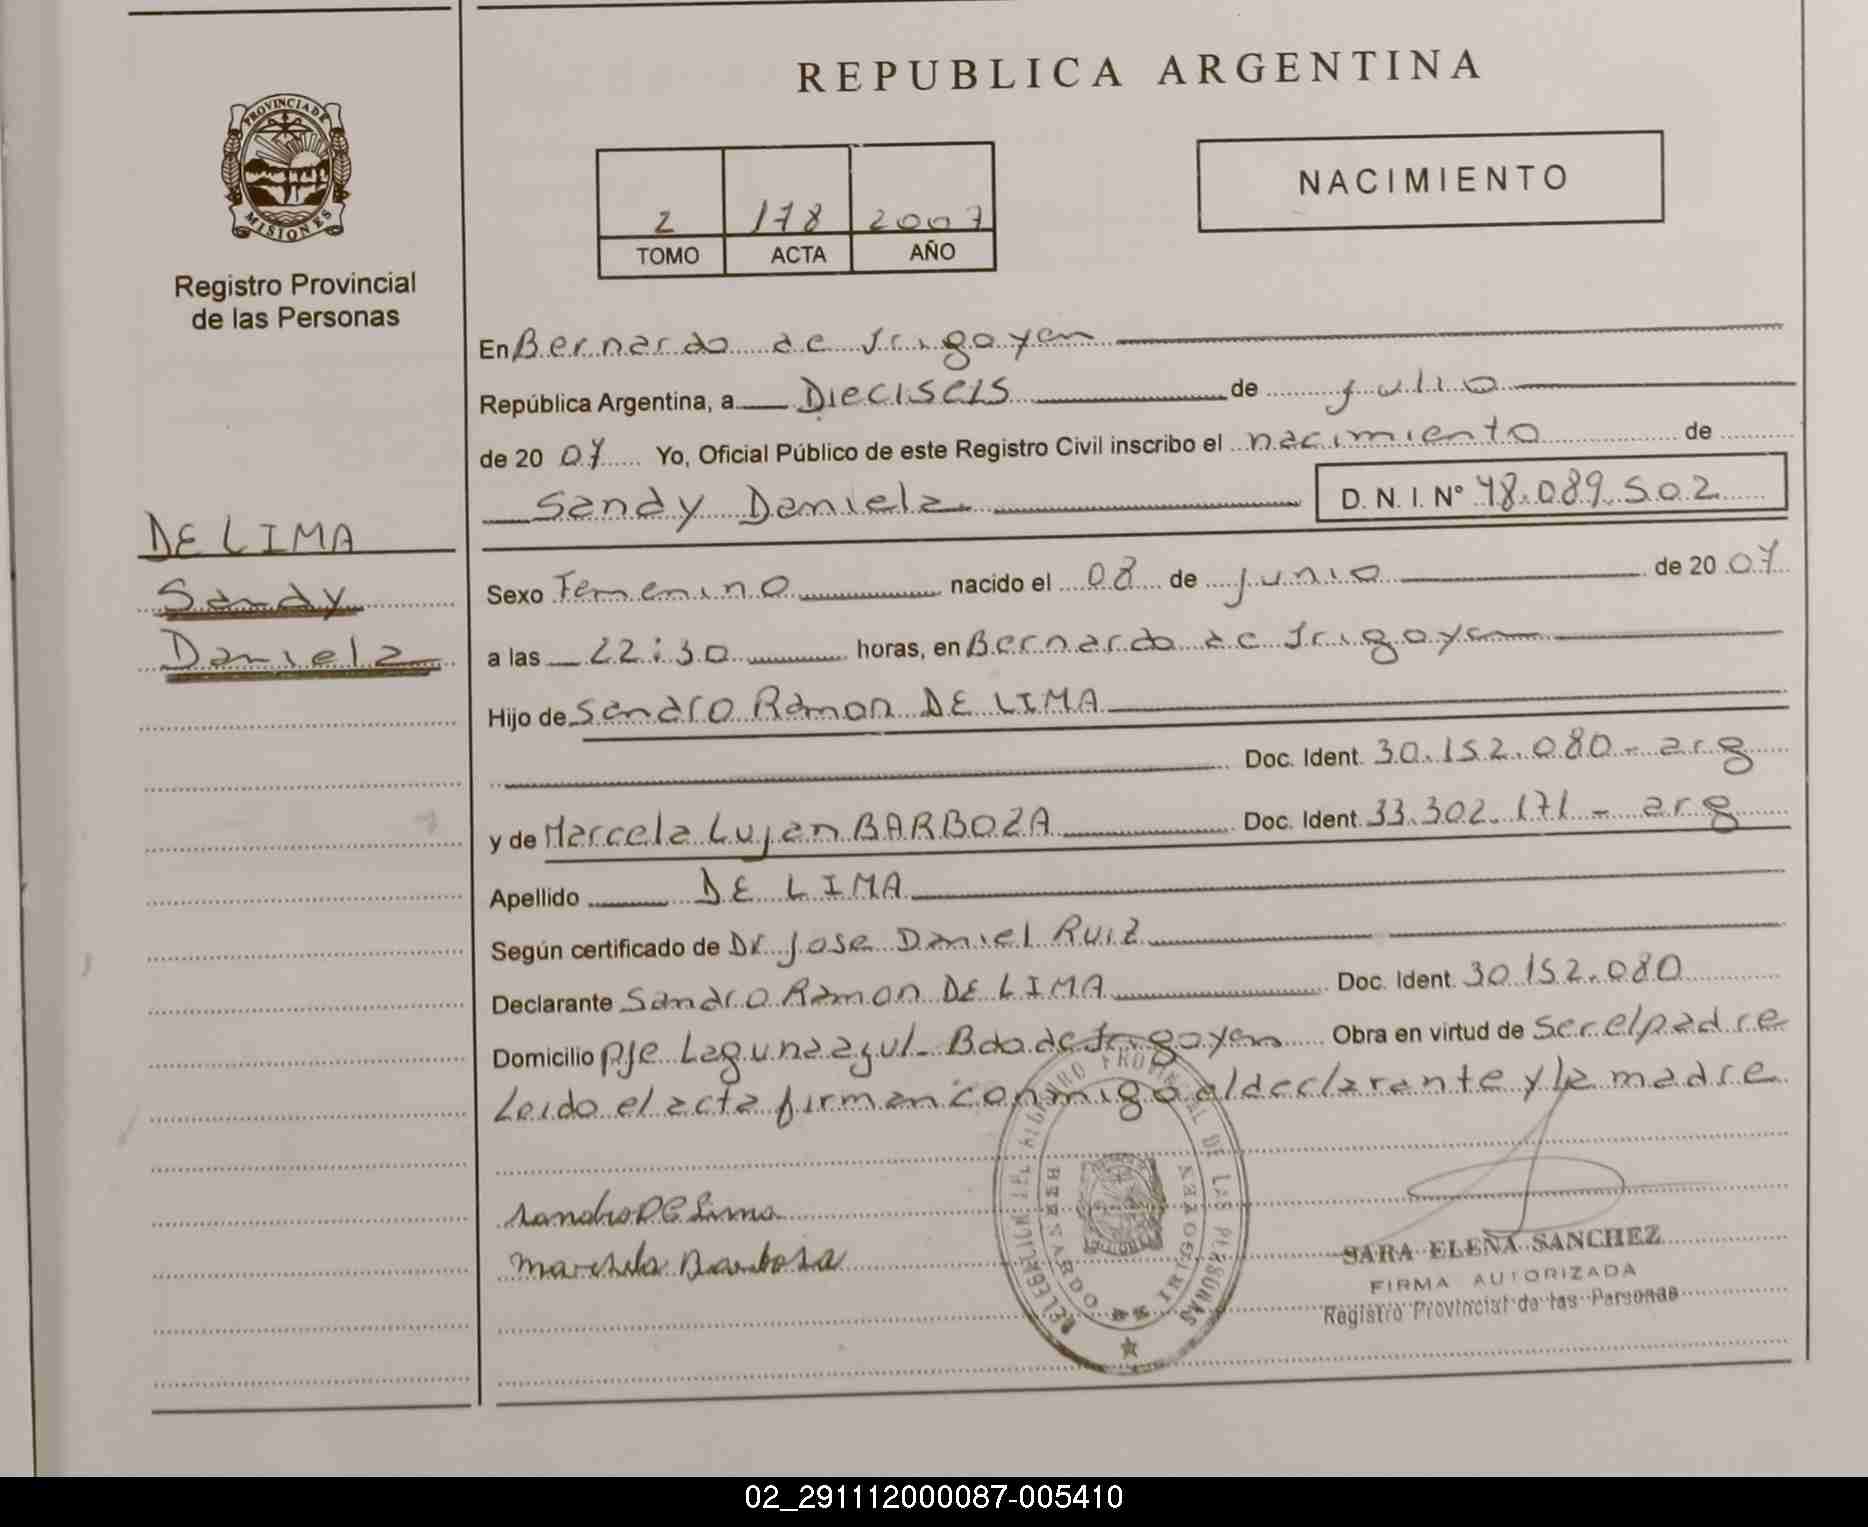 REPUBLICA ARGENTINA
PROVINCIA DE
MISIONES
Registro Provincial
de las Personas
2 178 2007
TOMO ACTA AÑO
NACIMIENTO
En Bernardo de Irigoyen
República Argentina, a Dieciseis de julio
de 20 07 Yo, Oficial Público de este Registro Civil inscribo el nacimiento de
Sandy Daniela D. N. I. N° 48.089.502
DE LIMA
Sandy
Daniela
Sexo Femenino nacido el 08 de junio de 20 07
a las 22:30 horas, en Bernardo de Irigoyen
Hijo de Sandro Ramon DE LIMA
Doc. Ident. 30.152.080 - arg
y de Marcela Lujan BARBOZA Doc. Ident. 33.302.171 - arg
Apellido DE LIMA
Según certificado de Dr. Jose Daniel Ruiz
Declarante Sandro Ramon DE LIMA Doc. Ident. 30.152.080
Domicilio pje Laguna azul - Bdo de Irigoyen Obra en virtud de ser el padre
Leido el acta firman conmigo el declarante y la madre
Sandro De Lima
Marcela Barboza
BERNARDO DE IRIGOYEN
SARA ELENA SANCHEZ
FIRMA AUTORIZADA
Registro Provincial de las Personas
02_291112000087-005410